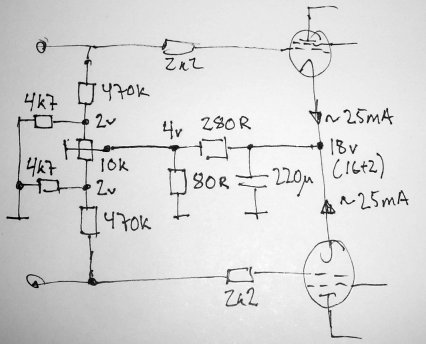 2k2
470k
4k7
2v
4v
280R
~25mA
10k
18v
(16+2)
4k7
2v
80R
220μ
~25mA
470k
2k2